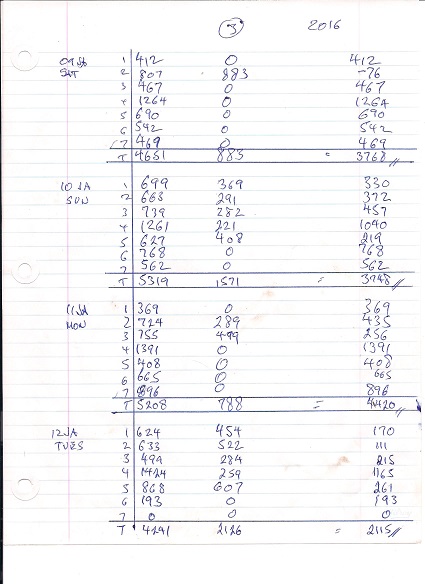 3 2016
09 JA 1 412 0 412
SAT 2 807 883 -76
3 467 0 467
4 1264 0 1264
5 690 0 690
6 542 0 542
7 469 0 469
T 4651 883 = 3768 //
10 JA 1 699 369 330
SUN 2 663 291 372
3 739 282 457
4 1261 221 1040
5 627 408 219
6 768 0 768
7 562 0 562
T 5319 1571 = 3748 //
11 JA 1 369 0 369
MON 2 724 289 435
3 755 499 256
4 1391 0 1391
5 408 0 408
6 665 0 665
7 896 0 896
T 5208 788 = 4420 //
12 JA 1 624 454 170
TUES 2 633 522 111
3 499 284 215
4 1424 259 1165
5 868 607 261
6 193 0 193
7 0 0 0
T 4241 2126 = 2115 //